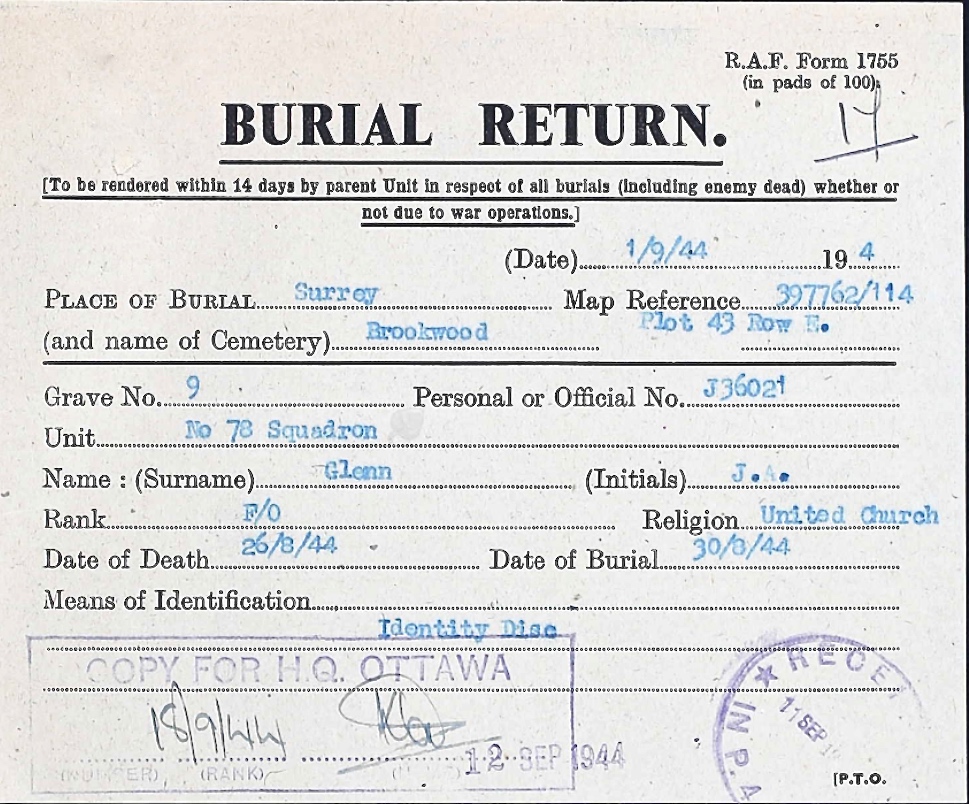 R.A.F. Form 1755
(in pads of 100).
17
BURIAL RETURN.
[To be rendered within 14 days by parent Unit in respect of all burials (including enemy dead) whether or
not due to war operations.]
(Date) 1/9/44 19 4
PLACE OF BURIAL Surrey Map Reference 397762/114
(and name of Cemetery) Brookwood Plot 43 Row E.
Grave No. 9 Personal or Official No. J36021
Unit No 78 Squadron
Name : (Surname) Glenn (Initials) J.A.
Rank F/O Religion United Church
Date of Death 26/8/44 Date of Burial 30/8/44
Means of Identification
Identity Disc
COPY FOR H.Q. OTTAWA
18/9/44
12 SEP 1944
(NUMBER) (RANK)
★ RECE
11 SEP
IN P.A
[P.T.O.